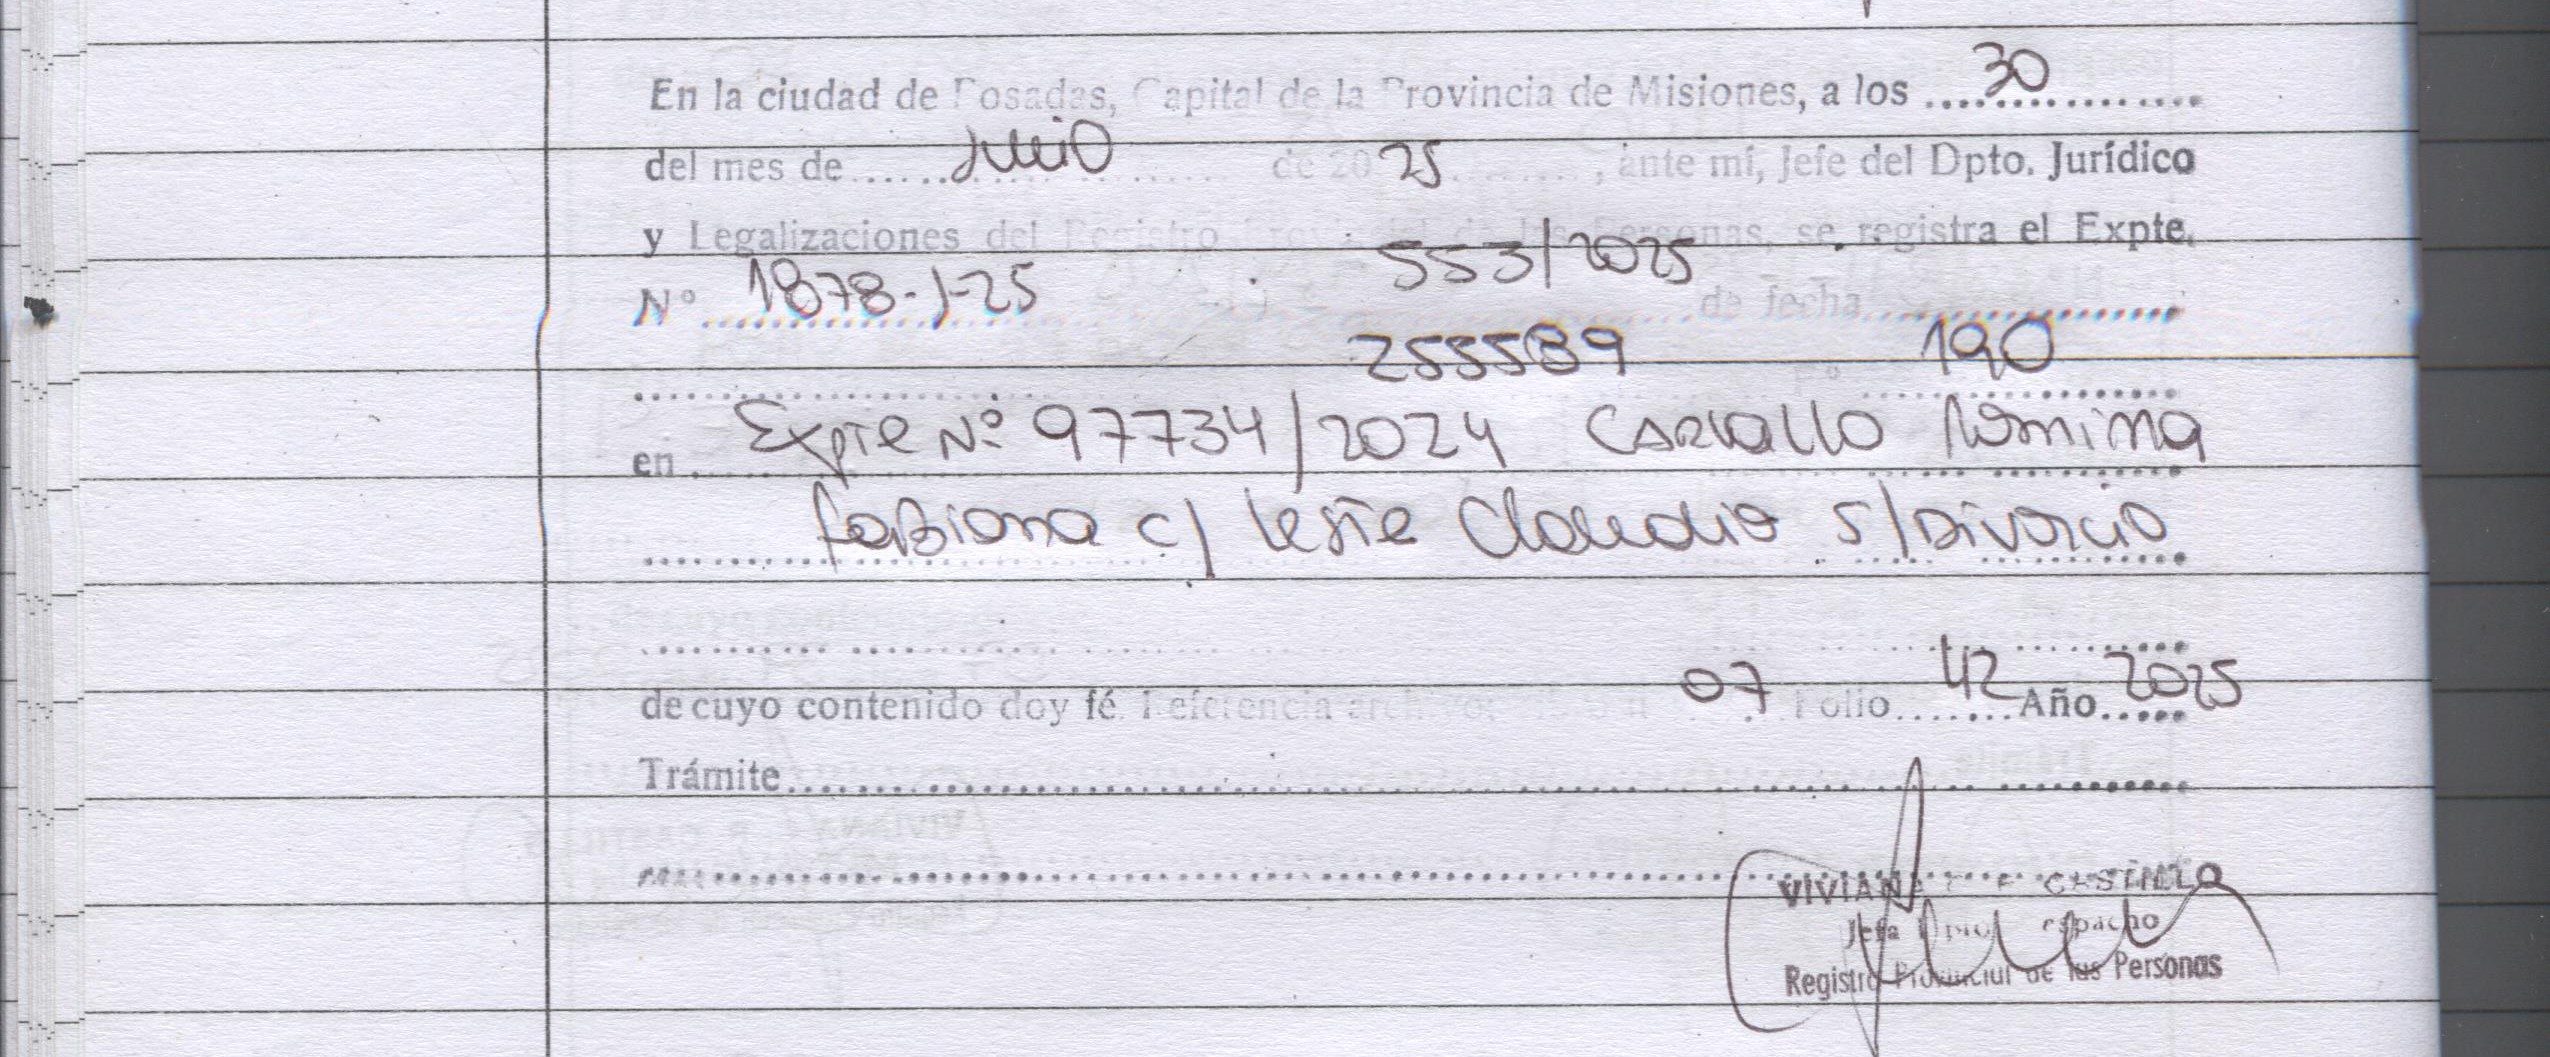 En la ciudad de Posadas, Capital de la Provincia de Misiones, a los .... 30 ....
del mes de ...... Julio ...... de 20 25 ...... , ante mí, Jefe del Dpto. Jurídico
y Legalizaciones del Registro Provincial de las Personas, se registra el Expte.
Nº 1878-J-25 553/2025 de fecha
255589 190
en Expte Nº 97734/2024 Carvallo Romina
Fabiana c/ Leste Claudio s/Divorcio
de cuyo contenido doy fé. Referencia archivo: 07 Folio 42 Año 2025
Trámite
VIVIANA CASTILLO
Jefa Dpto. Despacho
Registro Provincial de las Personas